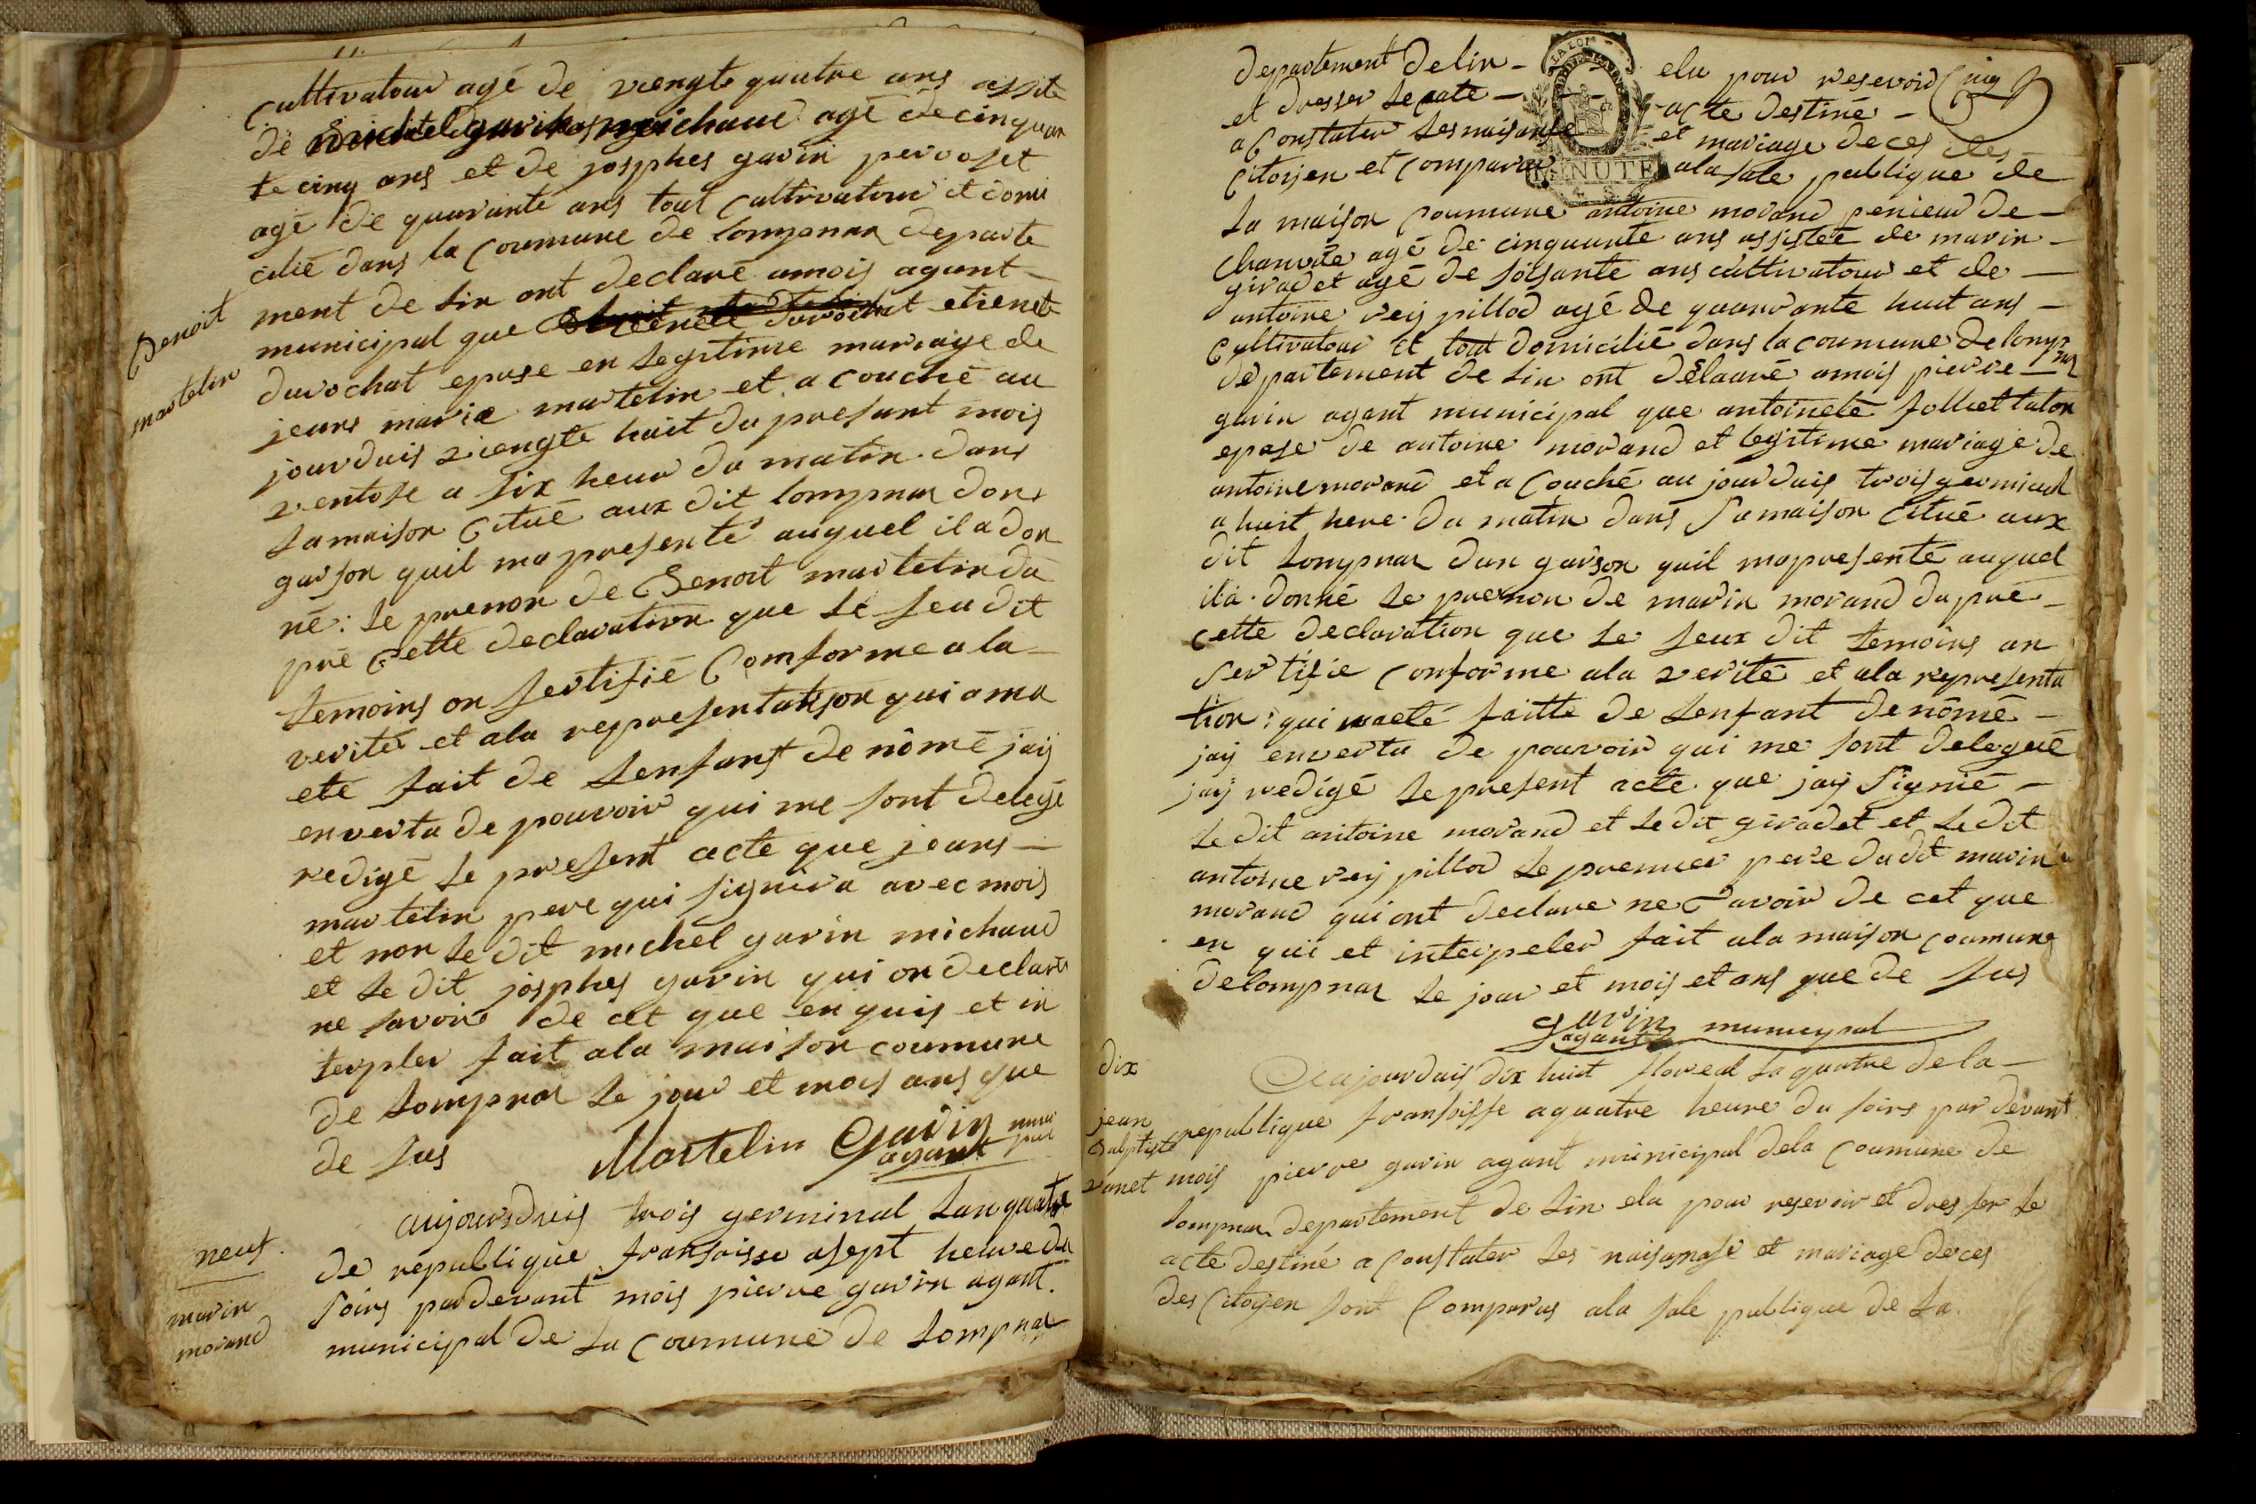 Cultivatour agé de viengte quatre ans assite
de michaud agé de cinquan
te cinq ans et de josphes gavin pervoset
agé de quarante ans tout Cultivatour et domi
cilié dans la Coumune de lompnar departe
ment de lin ont declaré amois agant
Benoit
martelin
municipal que etienete
duvochat epuse en legitime mariage de
jeans marie martelin et a couché au
jourduis viengte huit du presant mois
ventose a six heur du matin dans
samaison citué aux dit lompnar dons
garson quil ma presenté auquel il a don
né: le prenon de Benoit martelin da
pré Cette declaration que le seu dit
temoins on sertifié Comforme a la
verité et ala representatsion qui a ma
eté fait de lenfant de nômé jaij
envertu de pouvoir qui me sont delegé
redigé le present acte que jeans
martelin pere qui signera avec mois
et non le dit michel gavin michaud
et le dit josphes gavin qui on declaré
ne savoir de cet que enquis et in
terpler fait ala maison coumune
de lompnar le jour et mois ans que
de sus
Martelin Gavin agant muni pal
neuf.
marin
morand
aujoursduis trois germinal lanquatre
de republique fransoisse asept heure du
soirs pardevant mois pierre gavin agant.
municipal de la Coumune de lompnar
departement de lin elu pour reservoir Cinq
et dresser le acte destiné
a Constater les naisanse et mariage deces des
Citoijen et Comparu ala sale publique de
MINUTE
la maison Coumune antoine morand penieur de
Chanvre agé de cinquante ans assistée de marin
giradet agé de soisante ans cultivatour et de
antoine reij pillod agé de quarante huit ans
Cultivatour et tout domicilié dans la coumune de lomp
nar
departement de lin ont délauré amois pierre
gavin agant municipal que antoinete folliet talon
epuse de antoine morand et legitime mariage de
antoine morand et a Couché au jourduis trois germinal
a huit here du matin dans samaison citué aux
dit lompnar dun garson quil mapresenté auquel
il a donné le prenon de marin morand du pré
cette declaration que le seux dit temoins on
sertifié conforme ala verité et ala representa
tion: qui maeté faitte de lenfant denômé
jaij envertu de pouvoir qui me sont delegué
jaij redigé le present acte que jaij signié
le dit antoine morand et le dit giradet et le dit
antoine reij pillod le premier pere du dit marin
morand qui ont declare ne savoir de cet que
en quii et interpeler fait ala maison coumune
de lompnar le jour et mois et ans que de sus
Gavin agant municypal
dix
jean
Babtiste
vanet
Aujourduis dix huit floreal la quatre de la
republique fransoisse aquatre heure du soirs par devant
mois pierre gavin agant municipal dela Coumune de
lompnar departement de lin elu pour reservoir et dresser le
acte destiné a Constater les naisanse et mariage deces
des Citoijen sont Comparus ala sale publique de la